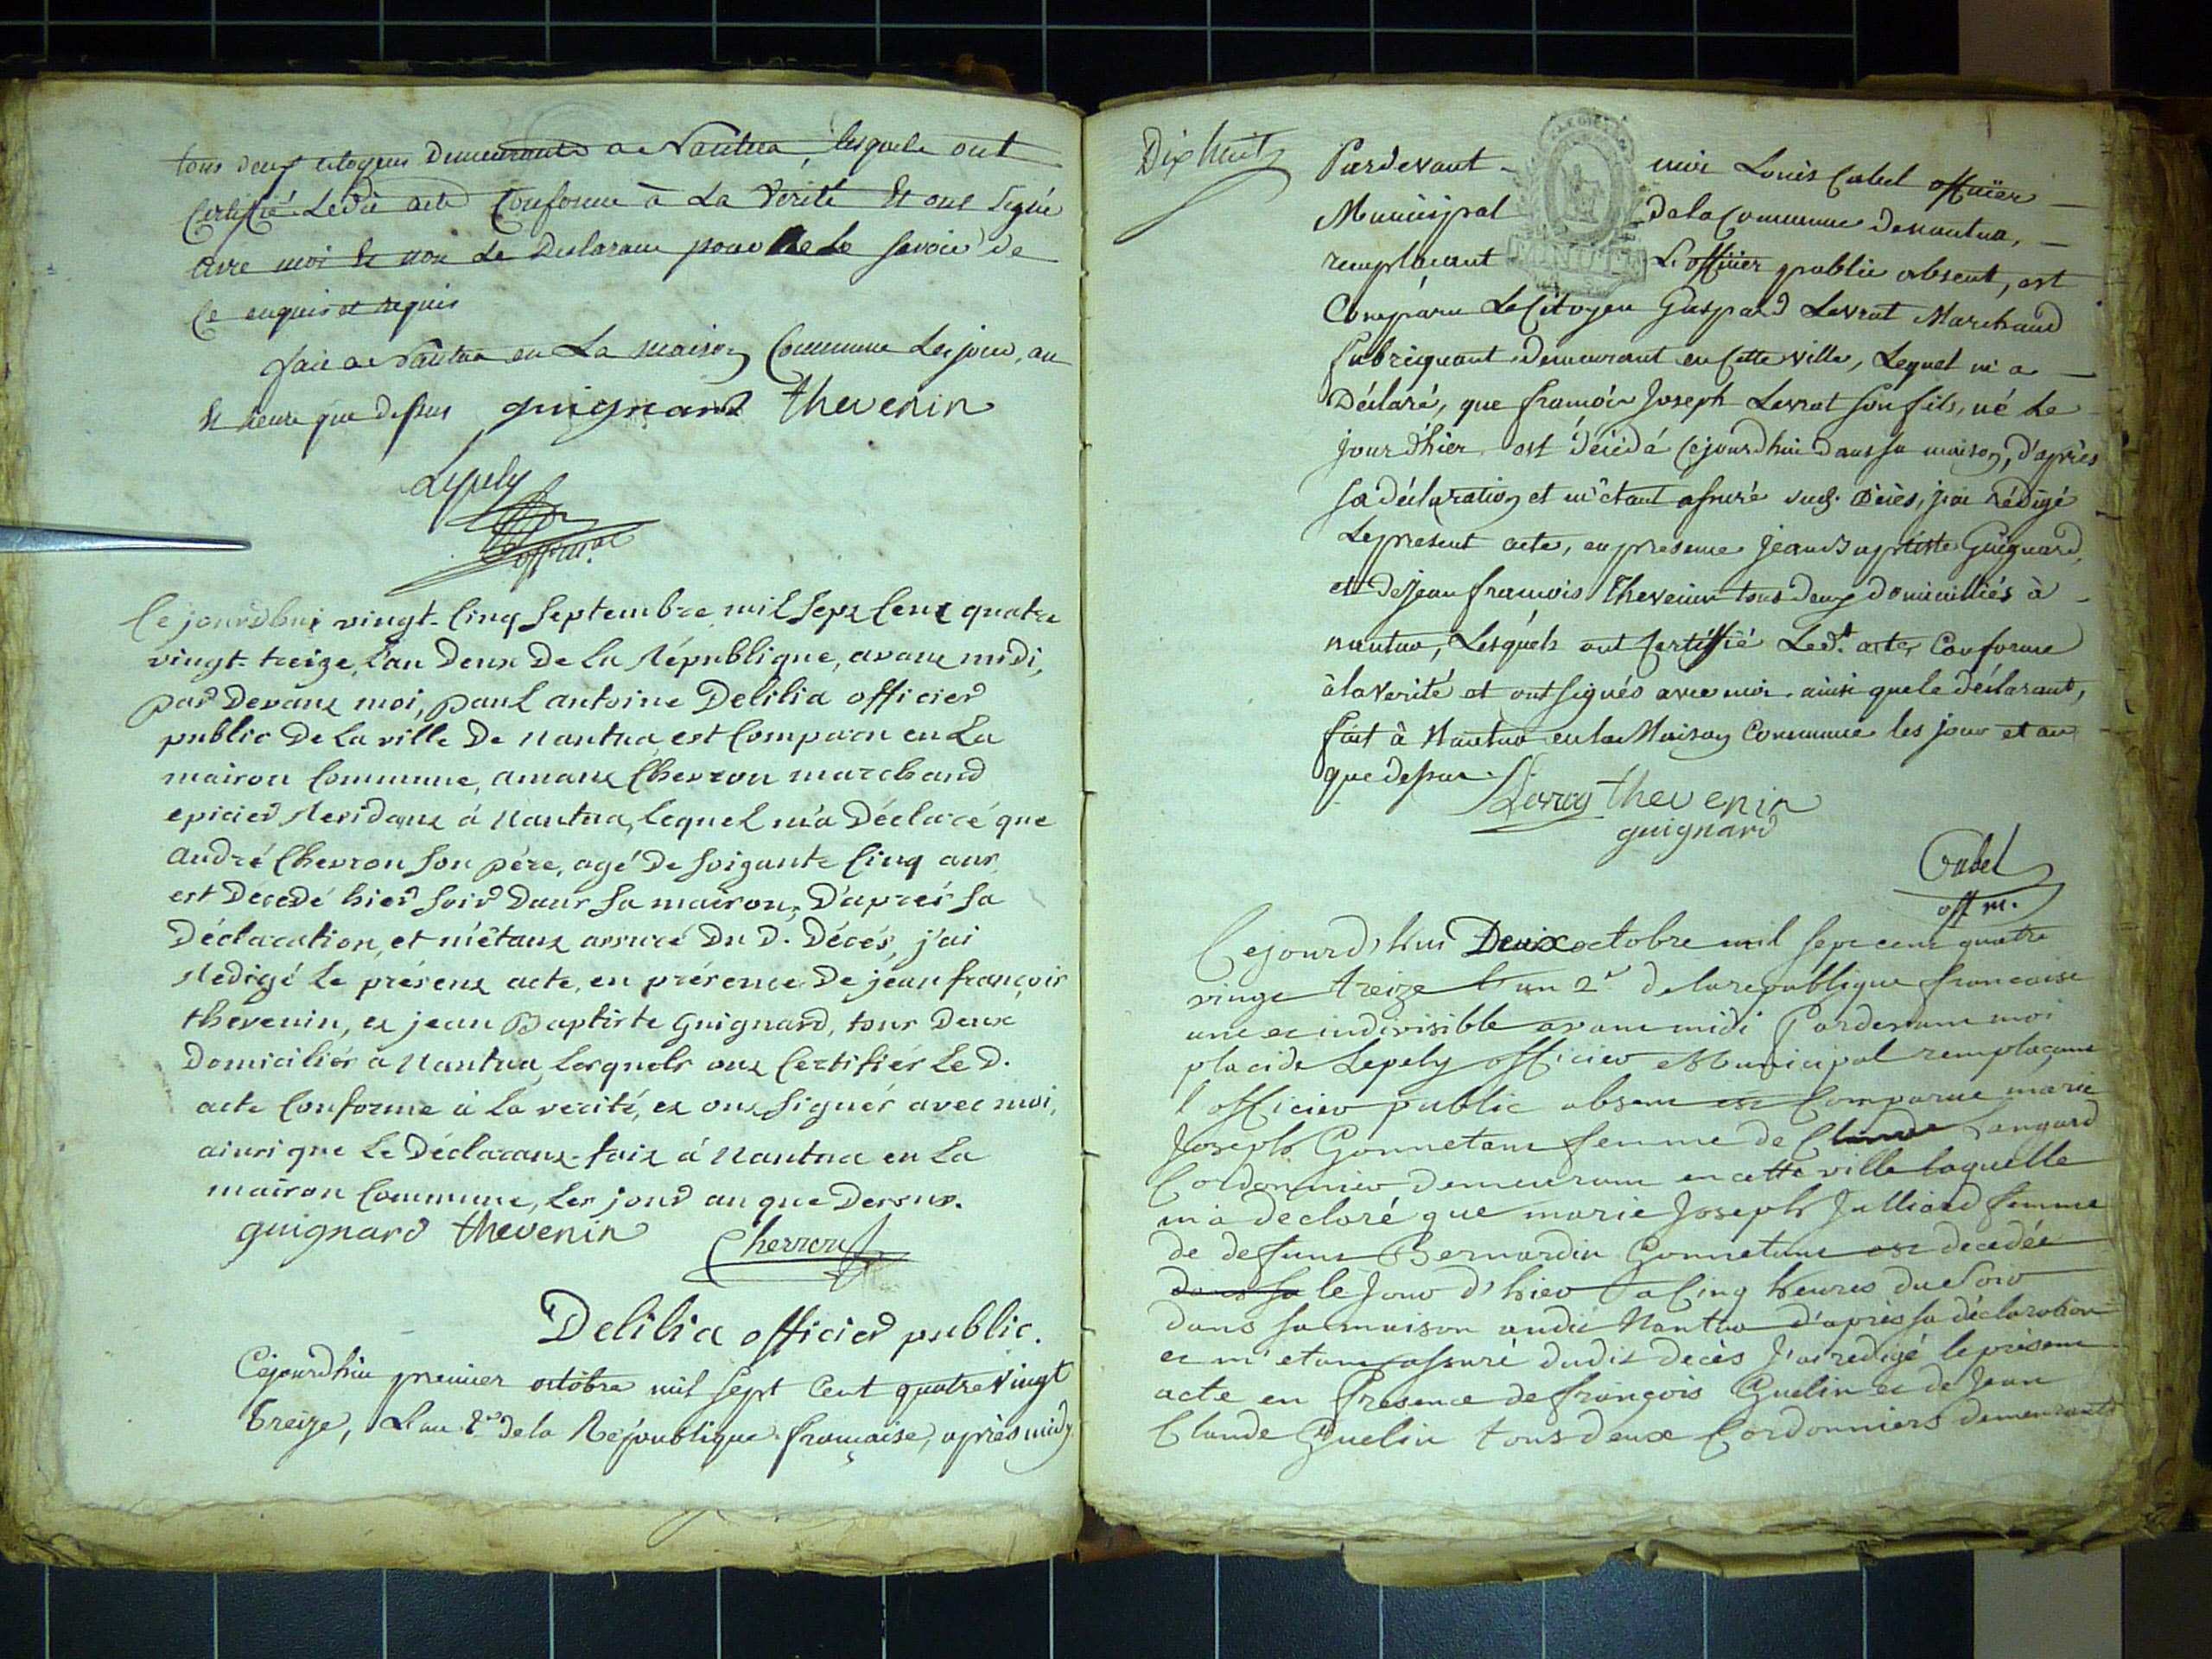 tous deux citoyens demeurants a Nantua, lesquels ont
Certiffié Ledit acte Conforme à La Verité Et ont Signé
avec moi Et non Le Declarant pour ne Le Savoir de
Ce enquis et requis
fait a Nantua en La maison Commune Les jour, an
Et heure que dessus guignard thevenin
Lepely
off. m.al
Cejourdhui vingt-Cinq Septembre mil Sept Cent quatre
vingt-treize, L'an Deux De La République, avant midi,
par Devant moi, paul antoine Delilia officier
public De La ville De Nantua est Comparu en La
maison Commune, amant Chevron marchand
epicier Residant á Nantua, Lequel m'a Déclaré que
andré Chevron Son pére, agé De Soixante Cinq ans
est Decedé hier Soir Dans Sa maison, D'aprés Sa
Déclaration, et m'étant assuré Du D. Décés, j'ai
Redigé Le présent acte, en présence De jean françois
thevenin, et jean Baptiste guignard, tous Deux
Domiciliés a Nantua, Lesquels ont Certifiés Le D.
acte Conforme à La verité, et ont Signés avec moi,
ainsi que Le Déclarant. fait á Nantua en La
maison Commune, Les jour an que Dessus.
guignard thevenin Chevron
Delilia officier public.
Cejourdhui premier octobre mil Sept Cent quatre Vingt
Treize, L'an 2e de la République française, après midy
Dix huit
Pardevant moi Louis Cabel officier
Municipal de la Commune de nantua,
remplacant L'officier public absent, est
Comparu Le Citoyen Gaspard Levrat Marchand
fabriquant demeurant en Cette ville, Lequel m'a
Déclaré, que francois Joseph Levrat son fils, né Le
jour d'hier est décédé Cejourdhui dans sa maison, d'après
sa déclaration et m'étant assuré dud. décès, j'ai rédigé
Le present acte, en presence jean Baptiste Guignard,
et de Jean francois Thevenin tous deux domicilliés à
nantua, Lesquels ont Certiffié Led.t acte Conforme
à la Verité et ont signés avec moi ainsi que le déclarant,
fait à Nantua en la Maison Commune les jour et an
que dessus. thevenin
guignard
Cabel
off m.
Cejourd'hui Deux octobre mil sept cent quatre
vingt treize l'an 2e de la republique francaise
une et indivisible avant midi Pardevant moi
placide Lepely officier Municipal remplaçant
l'officier public absent est Comparue marie
Joseph Gonnetant femme de Claude
Cordonnier demeurant en cette ville laquelle
m'a declaré que marie Joseph Julliard femme
de defunt Bernardin Gonnetant est decedée
dans sa le jour d'hier a Cinq heures du Soir
dans sa maison audit Nantua d'après sa déclaration
et m'etant assuré dudit decès J'ai redigé le présent
acte en Presence de françois Guelin et de Jean
Claude Guelin tous deux Cordonniers demeurants